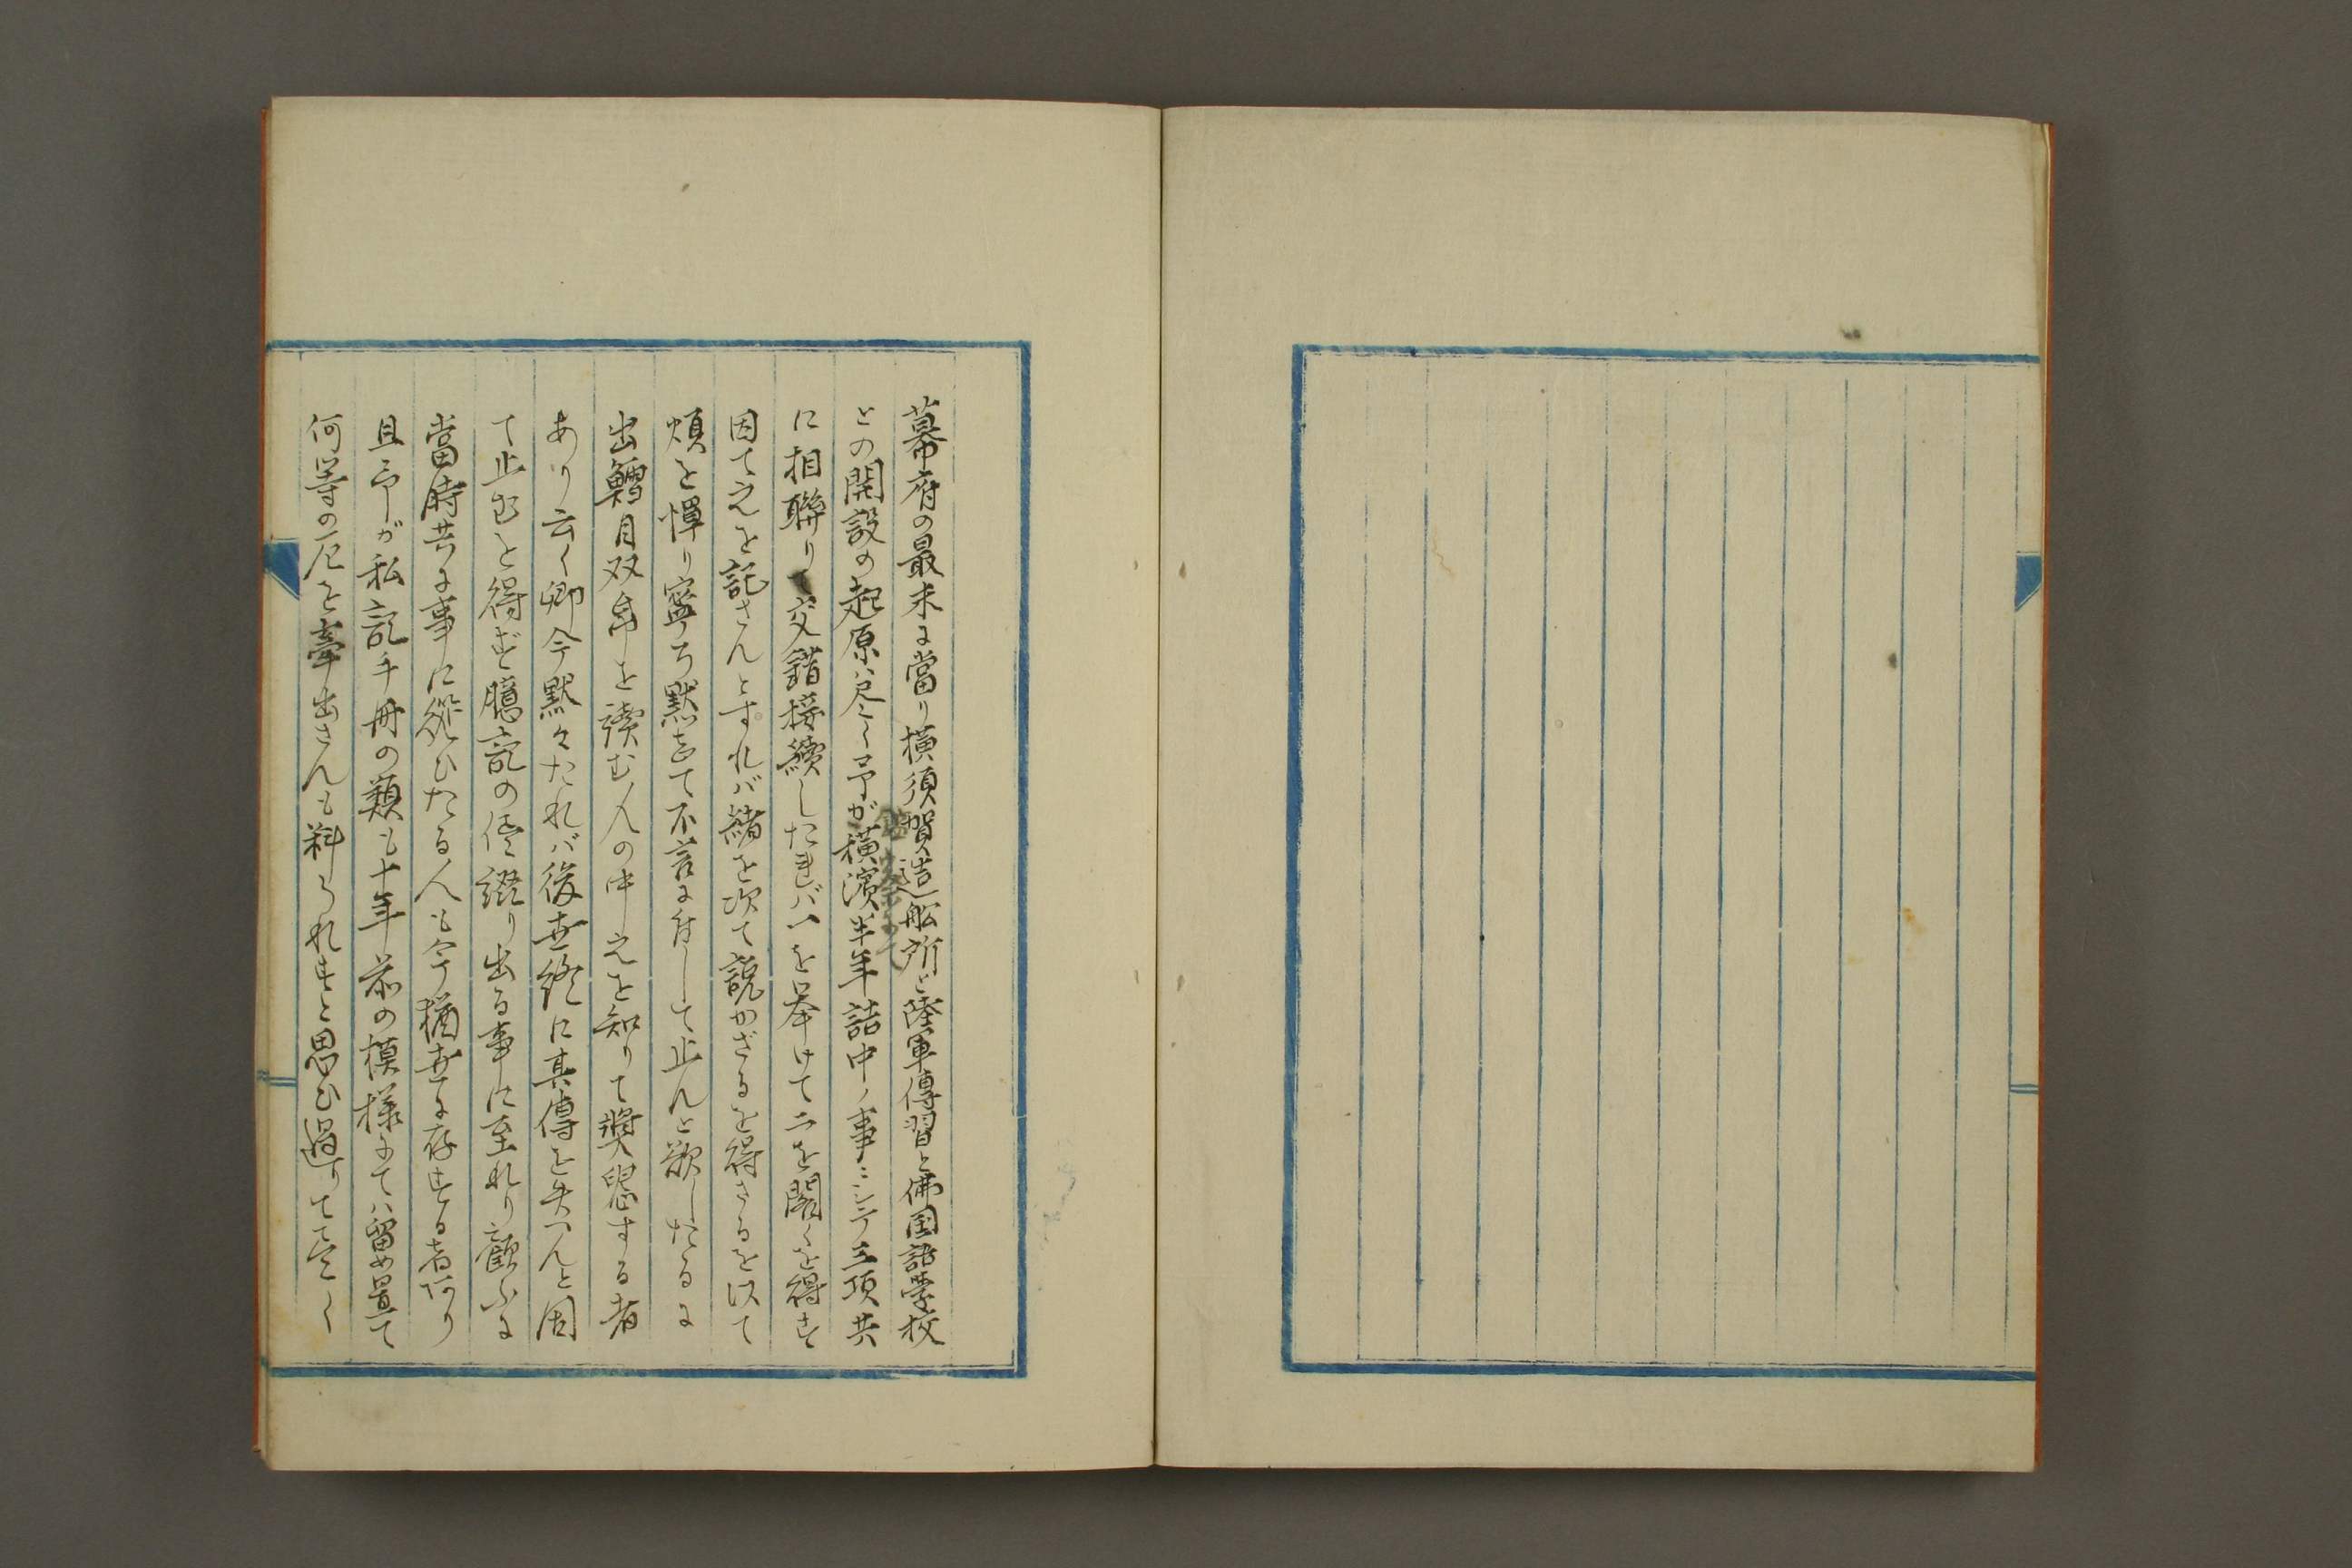 幕府の最末に當り横須賀造舩所と陸軍傳習と佛国語學校
との開設の起原ハ尽く予が横濱半年詰中ノ事ニシテ三項共
に相聯り交錯接續したればバ一を挙けて二を闕くを得ず
因て之を記さんとすれバ緒を次て説かざるを得さるを以て
煩を憚り寧ろ黙して不言に付して止んと欲したるに
出鱈目双帋を讀む人の中之を知りて奨慂する者
あり云く卿今黙々たれバ後世終に其傳を失つんと因
て止むを得ず臆記の侭綴り出る事に至れり顧ふに
當時共に事に從ひたる人も今猶世に存する者あり
且予が私記手冊の類も十年前の模様にてハ留め置て
何等の厄を牽出さんも料られずと思ひ過りて尽く